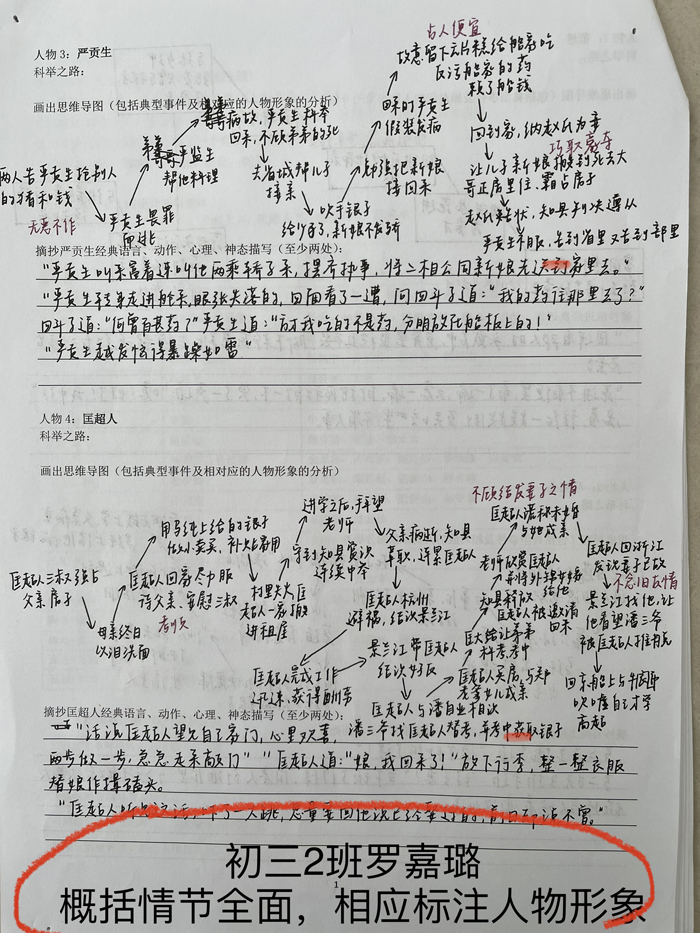 人物3：严贡生
科举之路：
画出思维导图（包括典型事件及相对应的人物形象的分析）
两人告严贡生给别人
的猪和钱
无恶不作
严贡生畏罪
而逃
弟弟严监生
帮他料理
病故，严贡生科举
回来，不顾弟弟的死
去省城帮儿子
接亲
吹手银子
给少了，新娘不发轿
却强把新娘
接回来
回时严贡生
假装发病
占人便宜
故意留下云片糕给船家吃
反污船家的药
赖了船钱
回到家，纳赵氏为妾
巧取豪夺
让儿子新娘搬到死去大
哥正房里住，霸占房子
赵氏告状，知县判决遵从
严贡生不服，告到省里又告到部里
摘抄严贡生经典语言、动作、心理、神态描写（至少两处）：
“严贡生转身走进舱来，眼张失落的，四面看了一遭，问四斗子道：“我的药往那里去了？”
四斗子道：“何曾有甚药？”严贡生道：“方才我吃的不是药，分明放在船板上的！”
“严贡生越发恼得暴躁如雷”
人物4：匡超人
科举之路：
画出思维导图（包括典型事件及相对应的人物形象的分析）
匡超人三叔强占
父亲房子
母亲终日
以泪洗面
匡超人回家尽力服
侍父亲、安慰三叔
孝顺
用马纯上给的银子
做小卖买，补贴家用
村里失火匡
超人一家搬
进租屋
等到知县赏识
连续中举
进学之后，拜望
老师
父亲病逝，知县
革职，连累匡超人
匡超人杭州
避祸，结识景兰江
匡超人完成工作
迅速，获得酬劳
景兰江带匡超人
结识好友
匡超人与潘自业相识
潘三爷找匡超人替考，并考中获取银子
匡超人买房，与郑
老爹女儿成亲
匡大结让弟弟
科考考中
知县释放
匡超人被邀请
回来
老师欣赏匡超人
并将外甥女嫁
给他
不顾结发妻子之情
匡超人谎称未婚
与她成亲
匡超人回浙江
发现妻子已故
不念旧友情
景兰江找他，让
他看望潘三爷
被匡超人推脱
回京船上与牛布衣
吹嘘自己才学
高超
摘抄匡超人经典语言、动作、心理、神态描写（至少两处）：
“话说匡超人望见自己家门，心里欢喜，
两步做一步，急急走来敲门”“匡超人道：“娘，我回来了！”放下行李，整一整衣服
替娘作揖磕头。
初三2班罗嘉璐
概括情节全面，相应标注人物形象